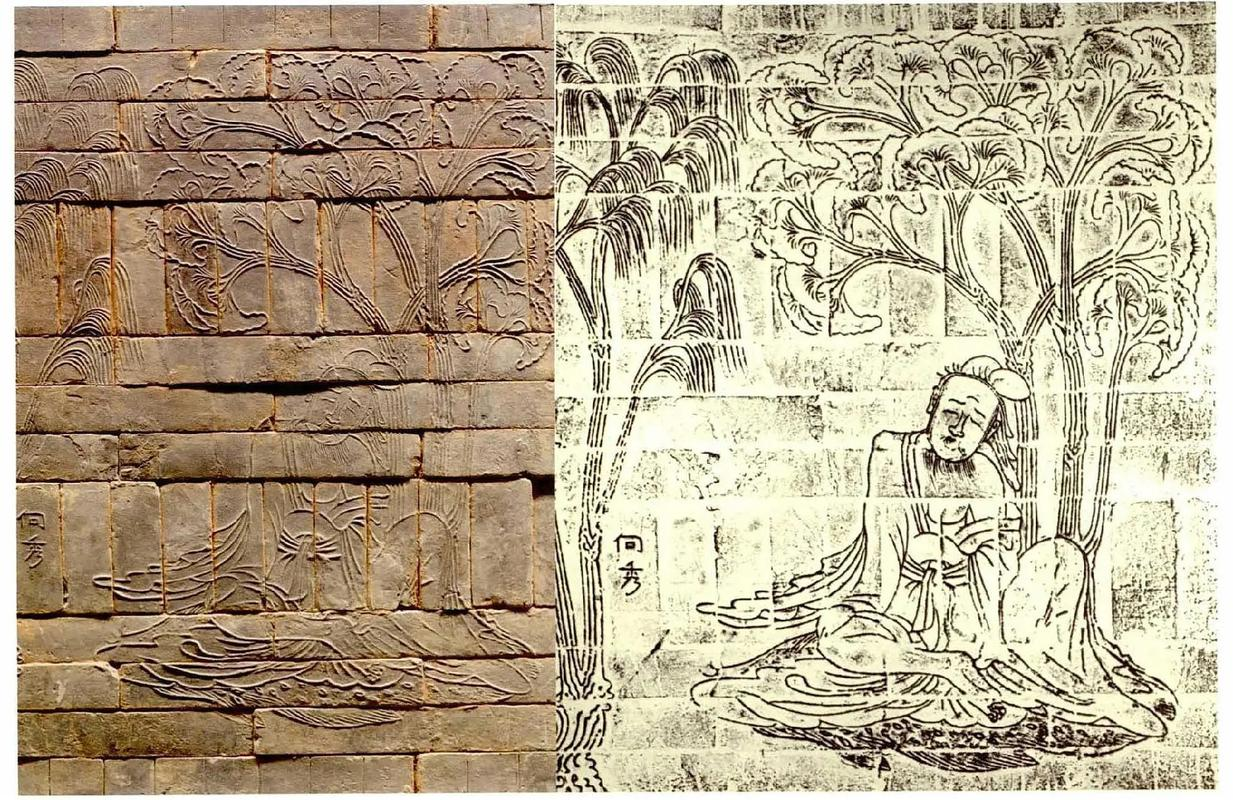 向秀
向秀